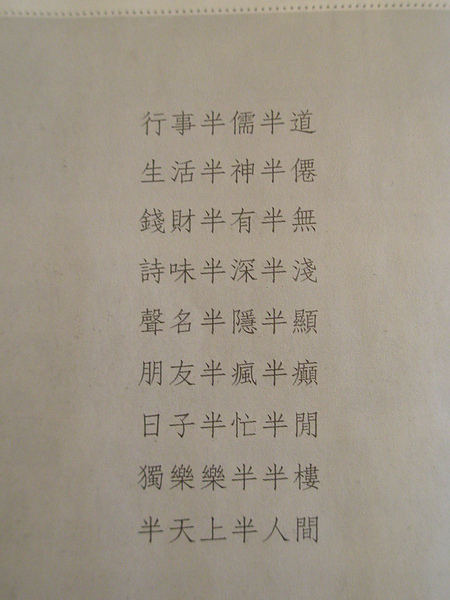 行事半儒半道
生活半神半僊
錢財半有半無
詩味半深半淺
聲名半隱半顯
朋友半瘋半癲
日子半忙半閒
獨樂樂半半樓
半天上半人間